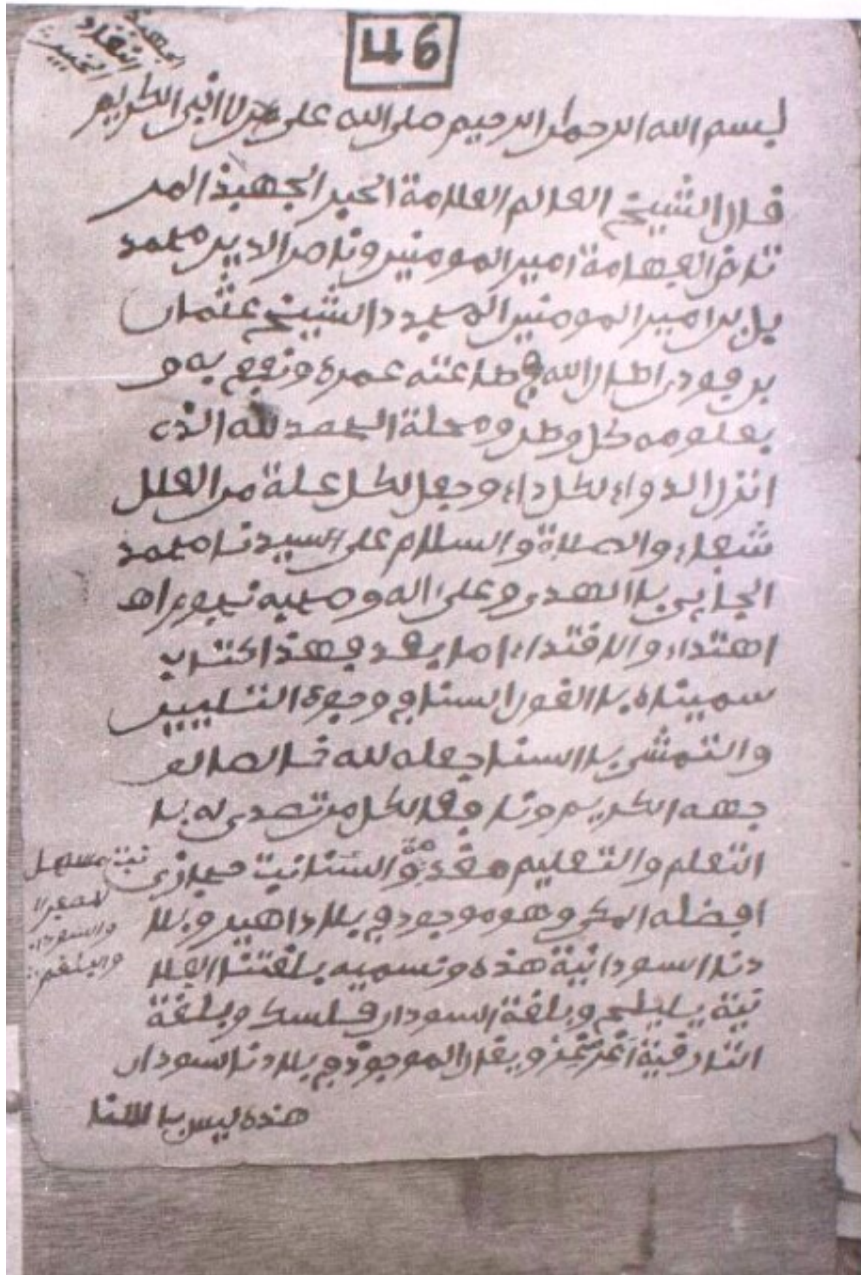 46
الجهبذ
النقاد
الخبير
بسم الله الرحمن الرحيم صلى الله على من لا نبي الكريم
قال الشيخ العالم العلامة الحبر الجهبذ المر
تاض الفهامة امير المومنين وناصر الدين محمد
بل بن امير المومنين المجدد الشيخ عثمان
بن فودي اطال الله في طاعته عمره ونفع به و
بعلومه كل وطن ومحلة الحمد لله الذي
انزل الدواء لكل داء وجعل لكل علة من العلل
شفاء والصلاة والسلام على السيدنا محمد
الجاءي باالهدى وعلى اله وصحبه نجوم اهـ
اهتداء والاقتداء اما بعد فهذا كتاب
سميناه باالقول السنا في وجوه التليين
والتمشي باالسنا جعله لله خالصا لو
جهه الكريم ونافعا لكل من تصدى له با
التعلم والتعليم مقدمة والسنا نبت حجازي
افضله المكي وهو موجود في بلاد اهير وبلا
دنا السودانية هذه ونسميه بلغتنا الفلا
نية يلبلح وبلغة السودان فلسك وبلغة
التارقية ويقال الموجود في بلادنا سودان
هذه ليس باالسنا
نبت مسهل
للصفرا
والسودا
والبلغم